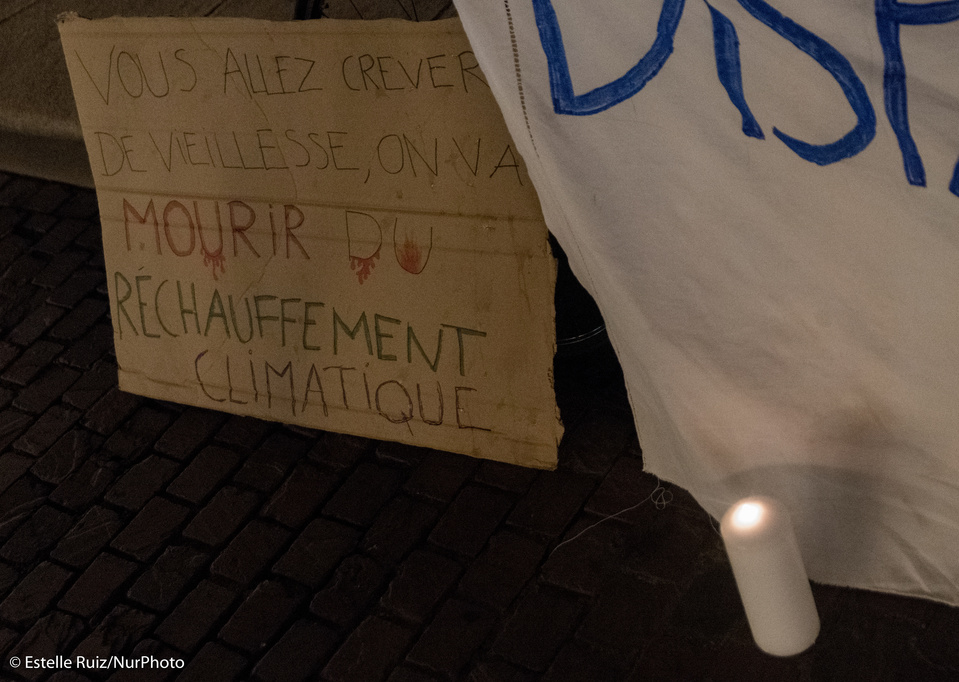 VOUS ALLEZ CREVER
DE VIEILLESSE, ON VA
MOURIR DU
RÉCHAUFFEMENT
CLIMATIQUE
© Estelle Ruiz/NurPhoto